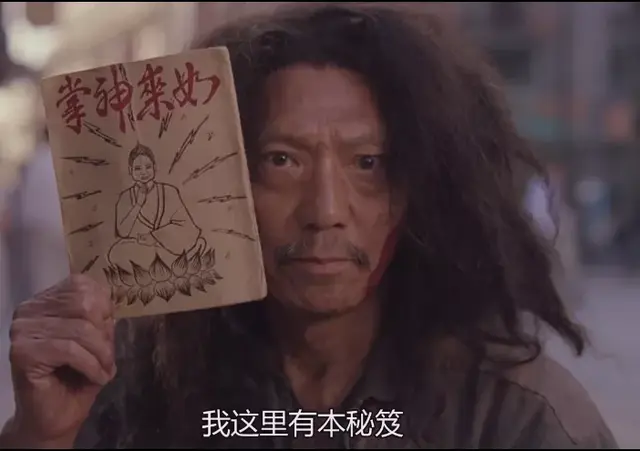 如來神掌
我这里有本秘笈